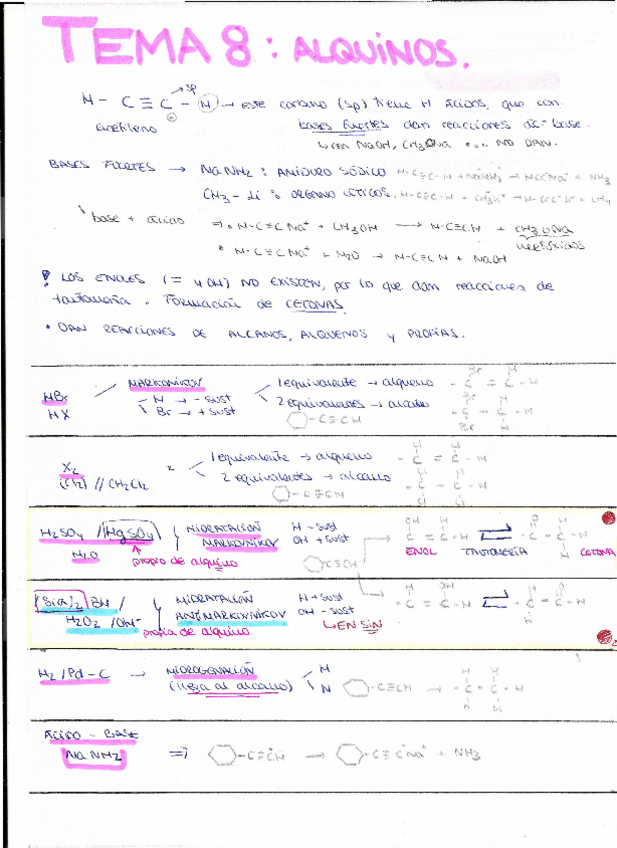 TEMA 8: ALQUINOS.
H - C ≡ C - H → este carbono (sp) tiene H ácidos, que con
sp
acetileno
bases fuertes dan reacciones ác-base.
↳ con NaOH, CH3ONa ... NO DAN.
BASES FUERTES → NaNH2: AMIDURO SÓDICO H-C≡C-H + NaNH2 → HC≡CNa+ + NH3
CH3-Li: ORGANOLÍTICOS. H-C≡C-H + CH3Li+ → H-C≡C-Li+ + CH4
base + ácido ⇒ • H-C≡CNa+ + CH3OH → H-C≡CH + CH3ONa
metóxidos
• H-C≡CNa+ + H2O → H-C≡CH + NaOH
! LOS ENOLES (= y OH) NO EXISTEN, por lo que dan reacciones de
tautomería. Formación de CETONAS.
• DAN REACCIONES DE ALCANOS, ALQUENOS y PROPIAS.
HBr
HX
MARKOVNIKOV
H → - sust
Br → + sust
1 equivalente → alqueno
2 equivalentes → alcano
C≡CH
X2
(Cl2) // CH2Cl2
=
1 equivalente → alqueno
2 equivalentes → alcano
C≡CH
H2SO4 / HgSO4
H2O
propio de alquino
HIDRATACIÓN
MARKOVNIKOV
H - sust
OH + sust
C≡CH
ENOL TAUTOMERÍA CETONA
(Sia)2 BH /
H2O2 / OH-
propia de alquino
HIDRATACIÓN
ANTIMARKOVNIKOV
H + sust
OH - sust
↳ EN SIN
H2 / Pd-C → HIDROGENACIÓN
(llega al alcano)
H
H
C≡CH →
ÁCIDO - BASE
NaNH2
⇒ C≡CH → C≡CNa+ + NH3